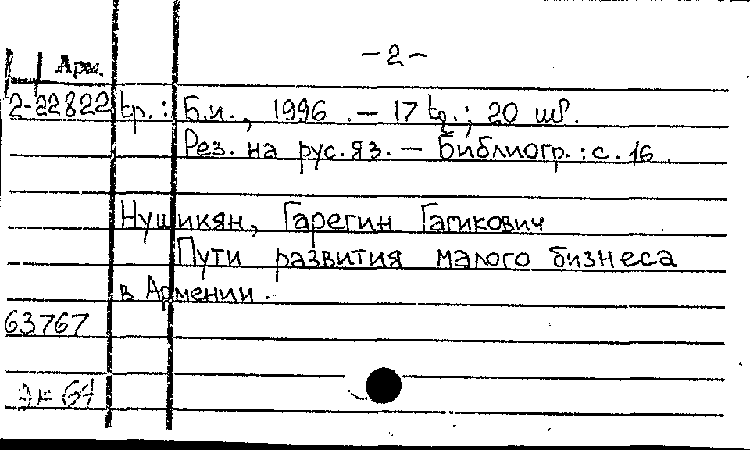 – 2 –
Арм.
2-22822 Եր.: Б.и., 1996 . – 17 էջ.; 20 սմ.
Рез. на рус. яз. – Библиогр.: с. 16
Нушикян, Гарегин Гагикович
Пути развития малого бизнеса
в Армении.
63767